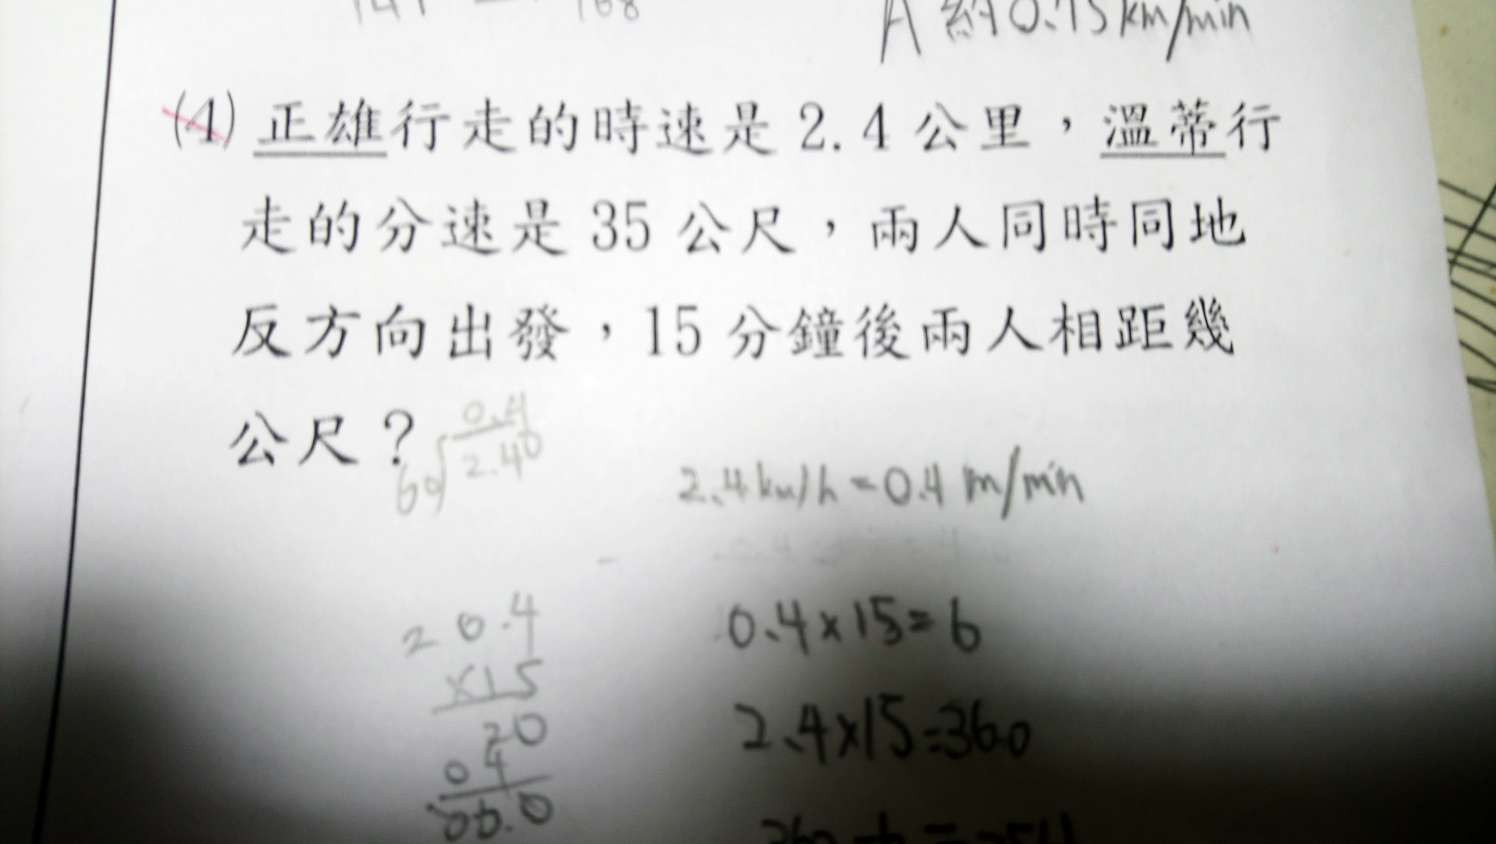 A 約0.75km/min
(4) 正雄行走的時速是 2.4 公里，溫蒂行
走的分速是 35 公尺，兩人同時同地
反方向出發，15 分鐘後兩人相距幾
公尺？
0.4
60 2.40
2.4km/h=0.4 m/min
2 0.4
×15
20
0 4
06.0
0.4×15=6
2.4×15=360